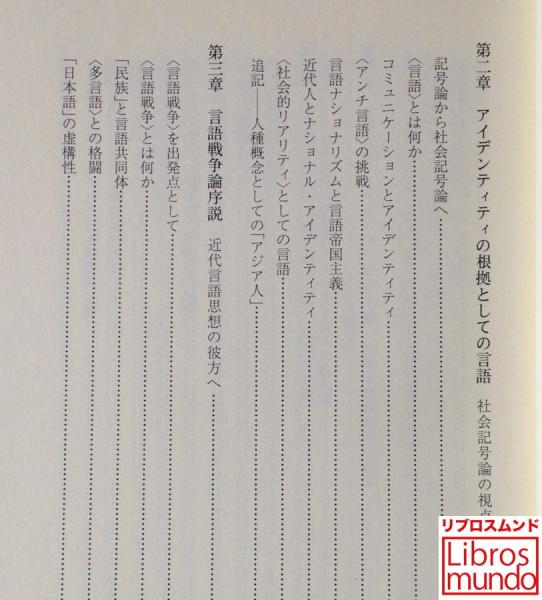 第二章 アイデンティティの根拠としての言語 社会記号論の視点
記号論から社会記号論へ
〈言語〉とは何か
コミュニケーションとアイデンティティ
〈アンチ言語〉の挑戦
言語ナショナリズムと言語帝国主義
近代人とナショナル・アイデンティティ
〈社会的リアリティ〉としての言語
追記――人種概念としての「アジア人」
第三章 言語戦争論序説 近代言語思想の彼方へ
〈言語戦争〉を出発点として
〈言語戦争〉とは何か
「民族」と言語共同体
〈多言語〉との格闘
「日本語」の虚構性
リブロスムンド
Libros
mundo